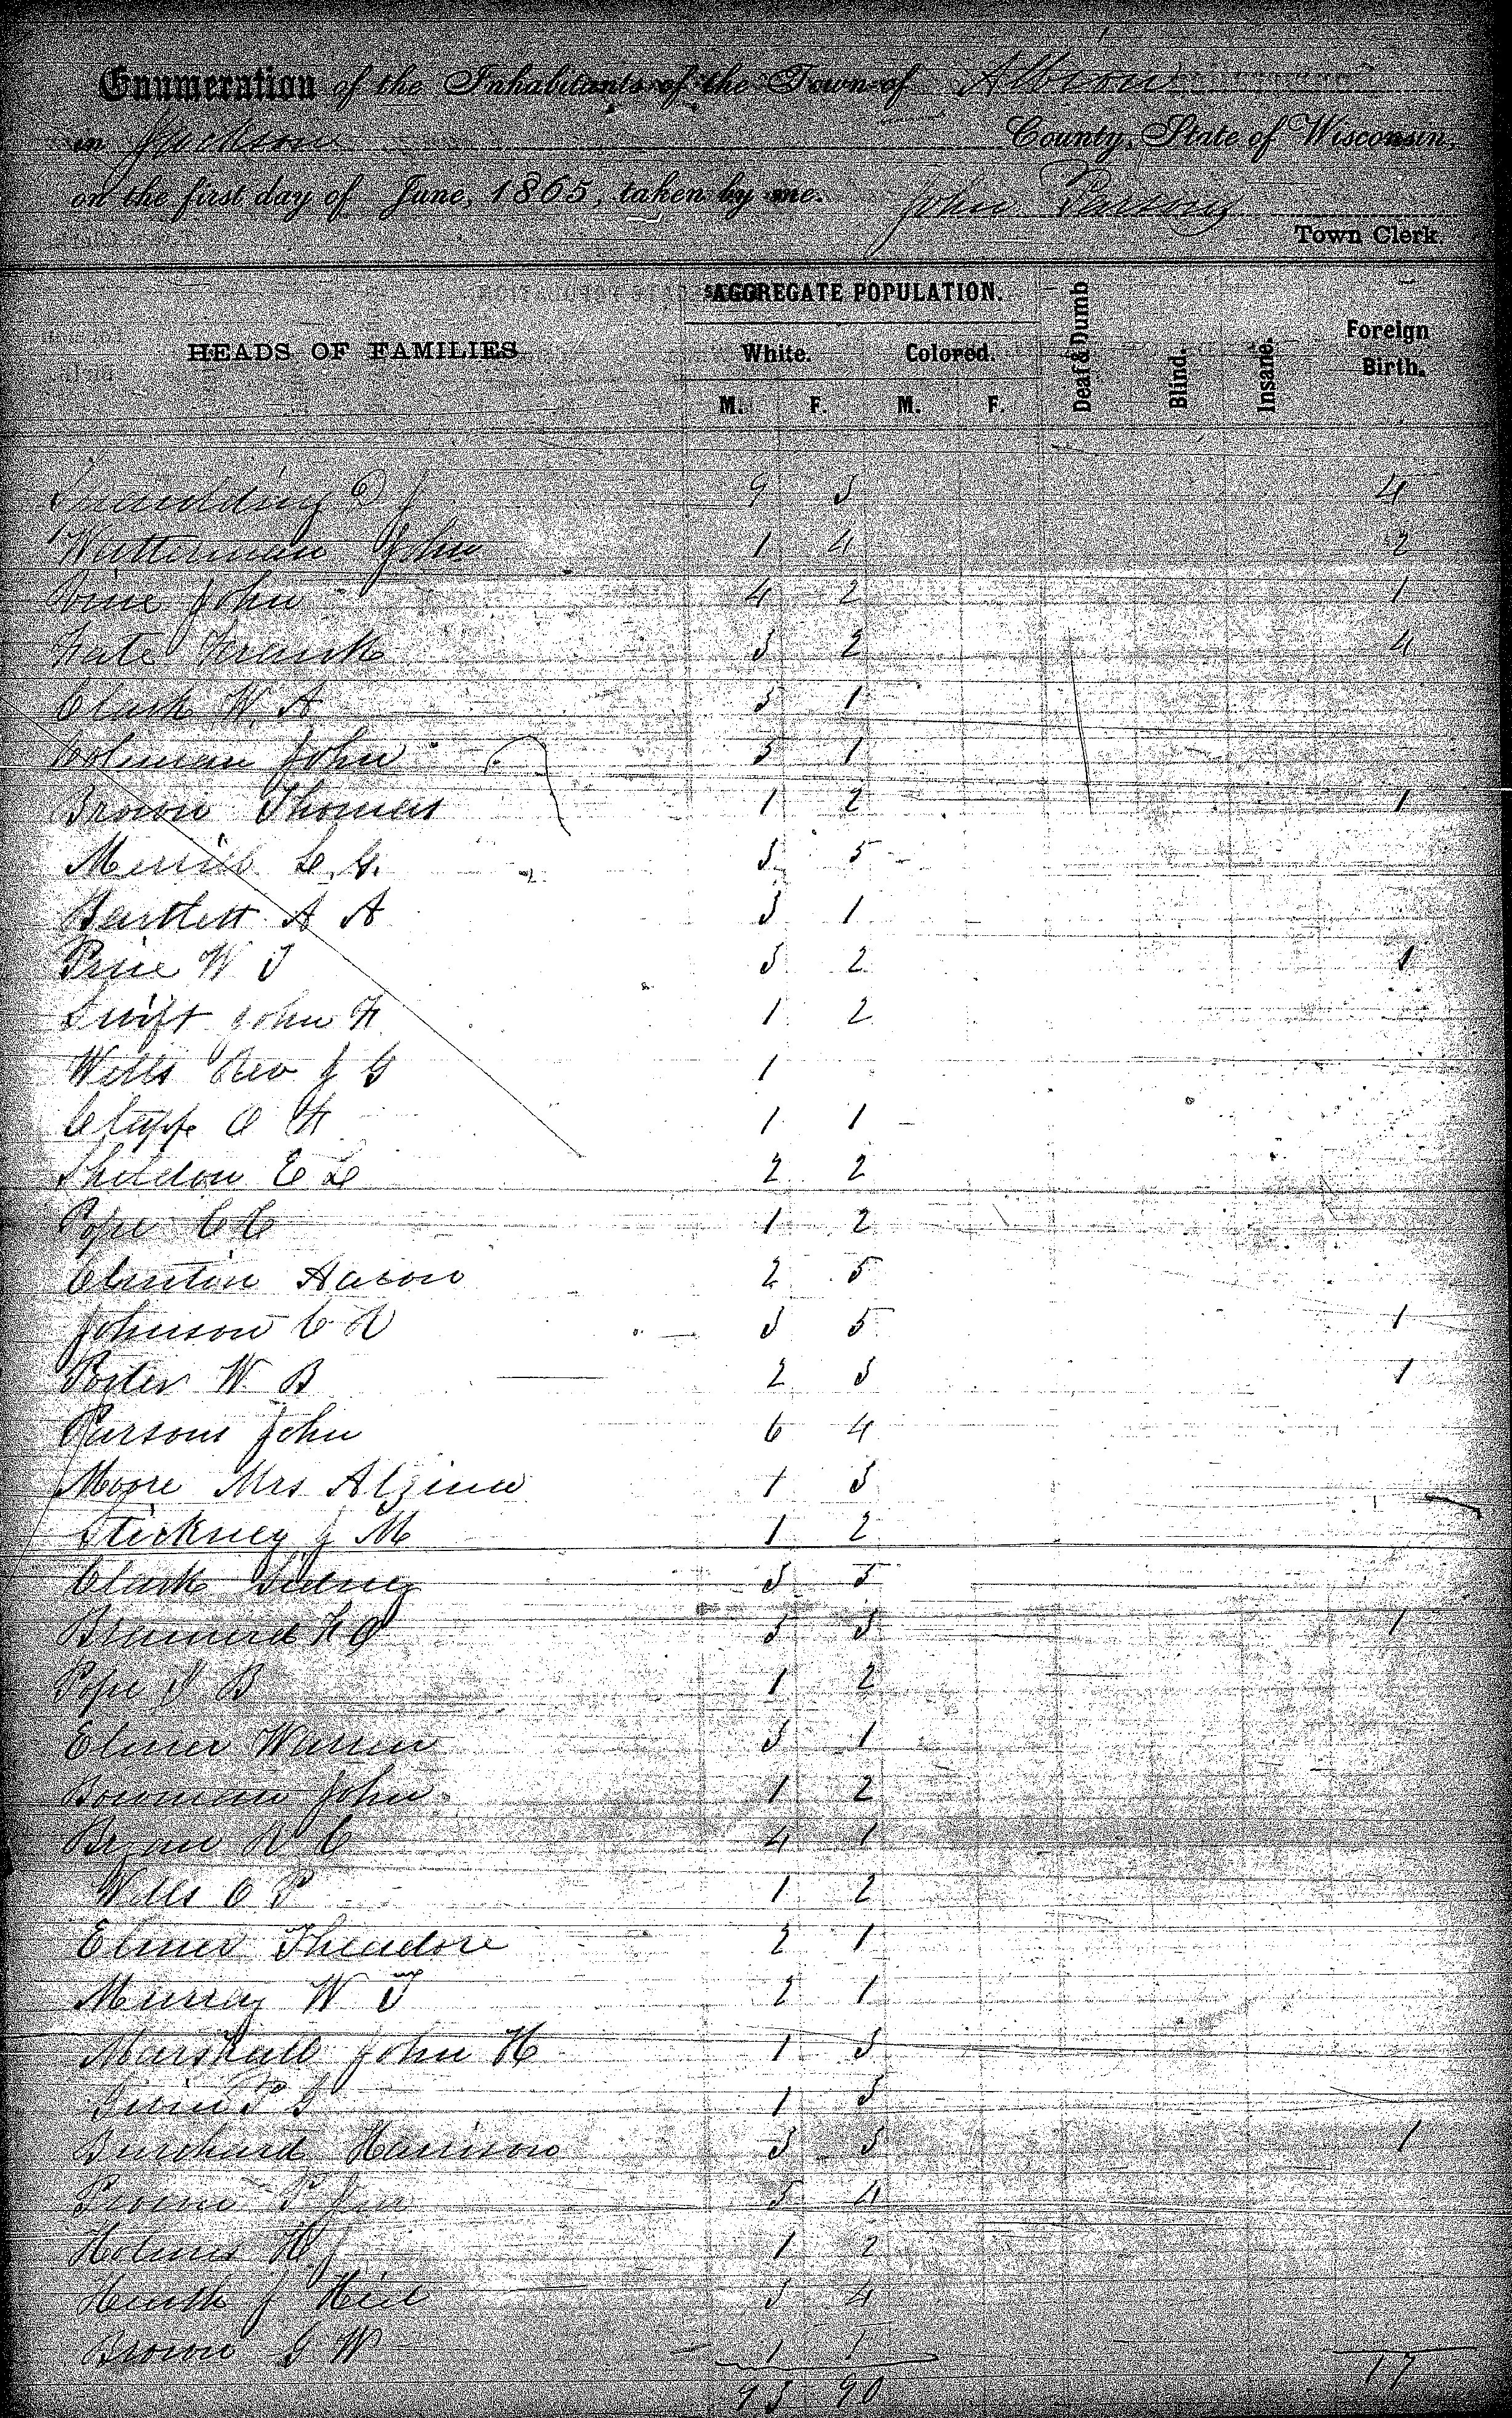 Enumeration of the Inhabitants of the Town of Albion
in Jackson County, State of Wisconsin,
on the first day of June, 1865, taken by me. John Parsons
Town Clerk.
HEADS OF FAMILIES AGGREGATE POPULATION. Deaf & Dumb Blind. Insane. Foreign Birth.
White. Colored.
M. F. M. F.
Spaulding D J 9 3 4
Watterman John 1 4 2
John 4 2 1
Frank 3 2 4
Clark W. A 3 1
Colman John 5 1
Brown Thomas 1 2 1
Merrill L. G. 3 5
Bartlett A A 3 1
Price W T 3 2 1
Swift John F. 1 2
Wells Rev J G 1
Clapp O F 1 1
Sheldon E L 2 2
Pope C C 1 2
Clinton Aaron 2 5
Johnson C R 3 5 1
Porter W. B 2 3 1
Parsons John 6 4
Moore Mrs Alzina 1 3
Stickney J M 1 2
Clark Sidney 3 5
Brainerd F O 5 3 1
Pope B 1 2
Elmer Warren 3 1
Bowman John 1 2
Bryan R C 4 1
Wells O P 1 2
Elmer Theadore 2 1
Murray W T 2 1
Marshall John H 1 3
P G 1 3
Burchard Harrison 3 3 1
P 5 4
Holmes H. J 1 2
Heath J 3 4
Brown G W 1 1
93 90 17